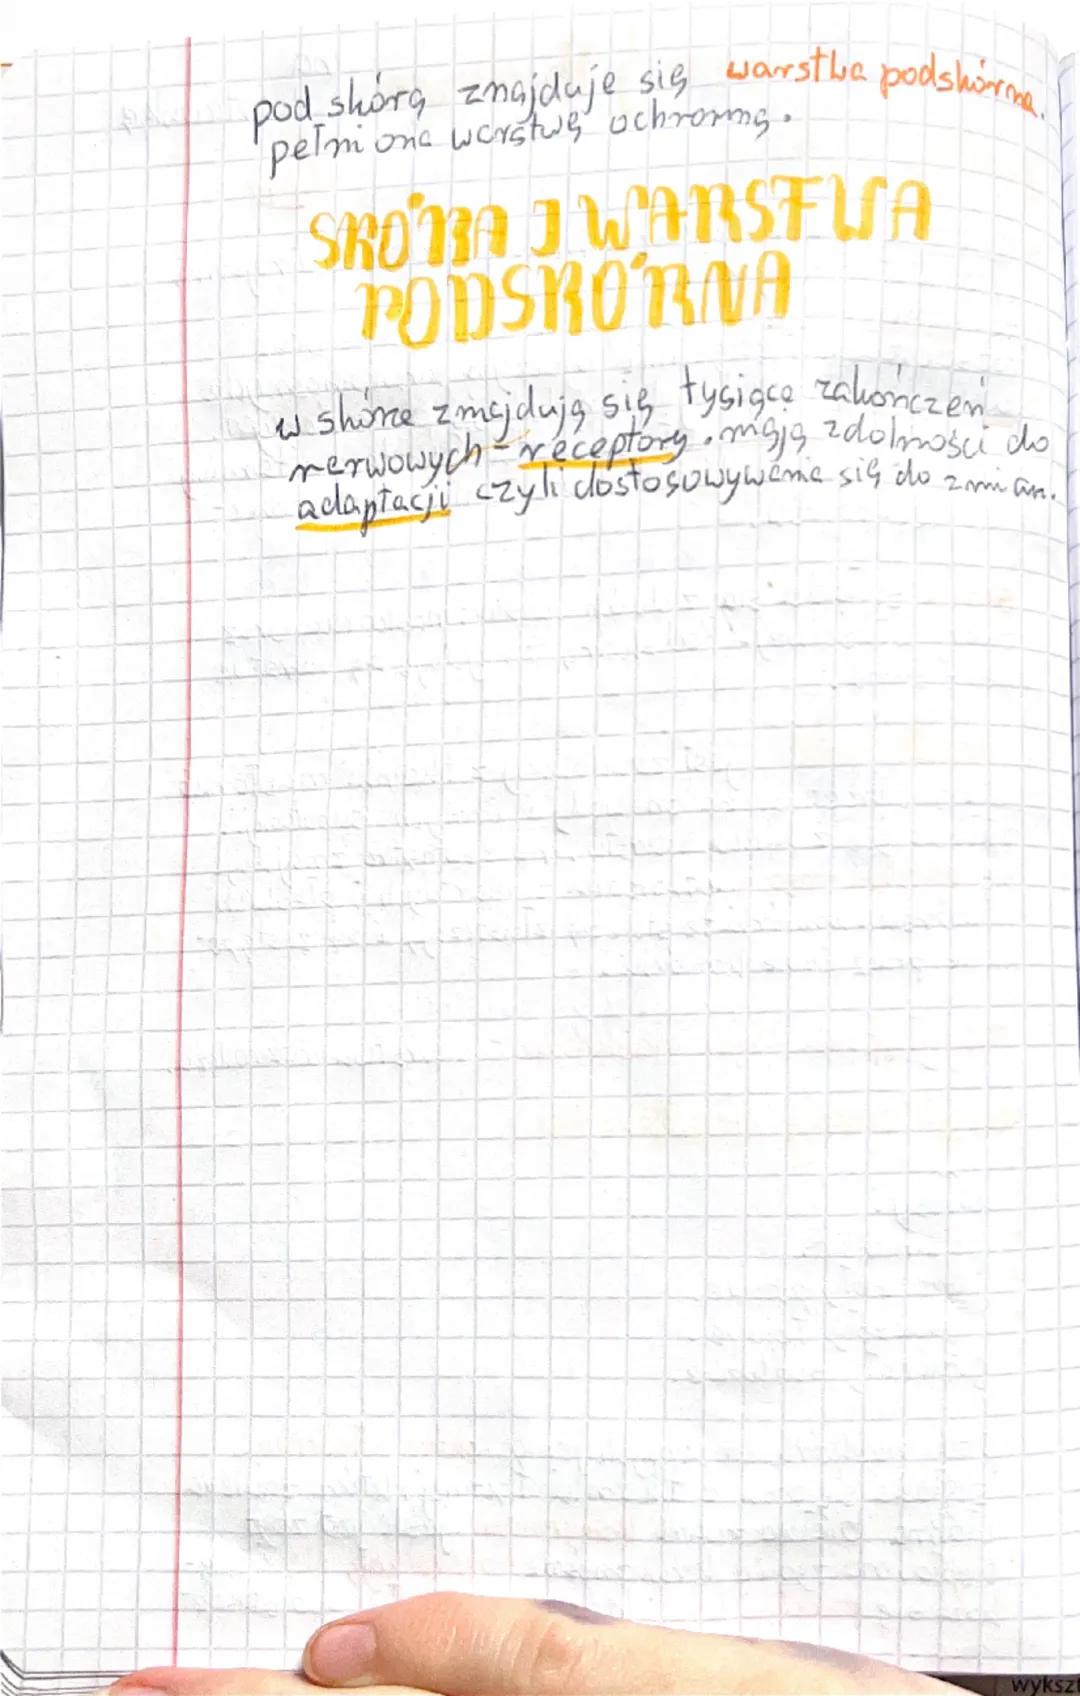 pod skórą znajduje się warstwa podskórna.
pełni ona warstwę ochronną.
SKÓRA I WARSTWA
PODSKÓRNA
w skórze znajdują się tysiące zakończeń
nerwowych - receptory. mają zdolności do
adaptacji czyli dostosowywania się do zmian.